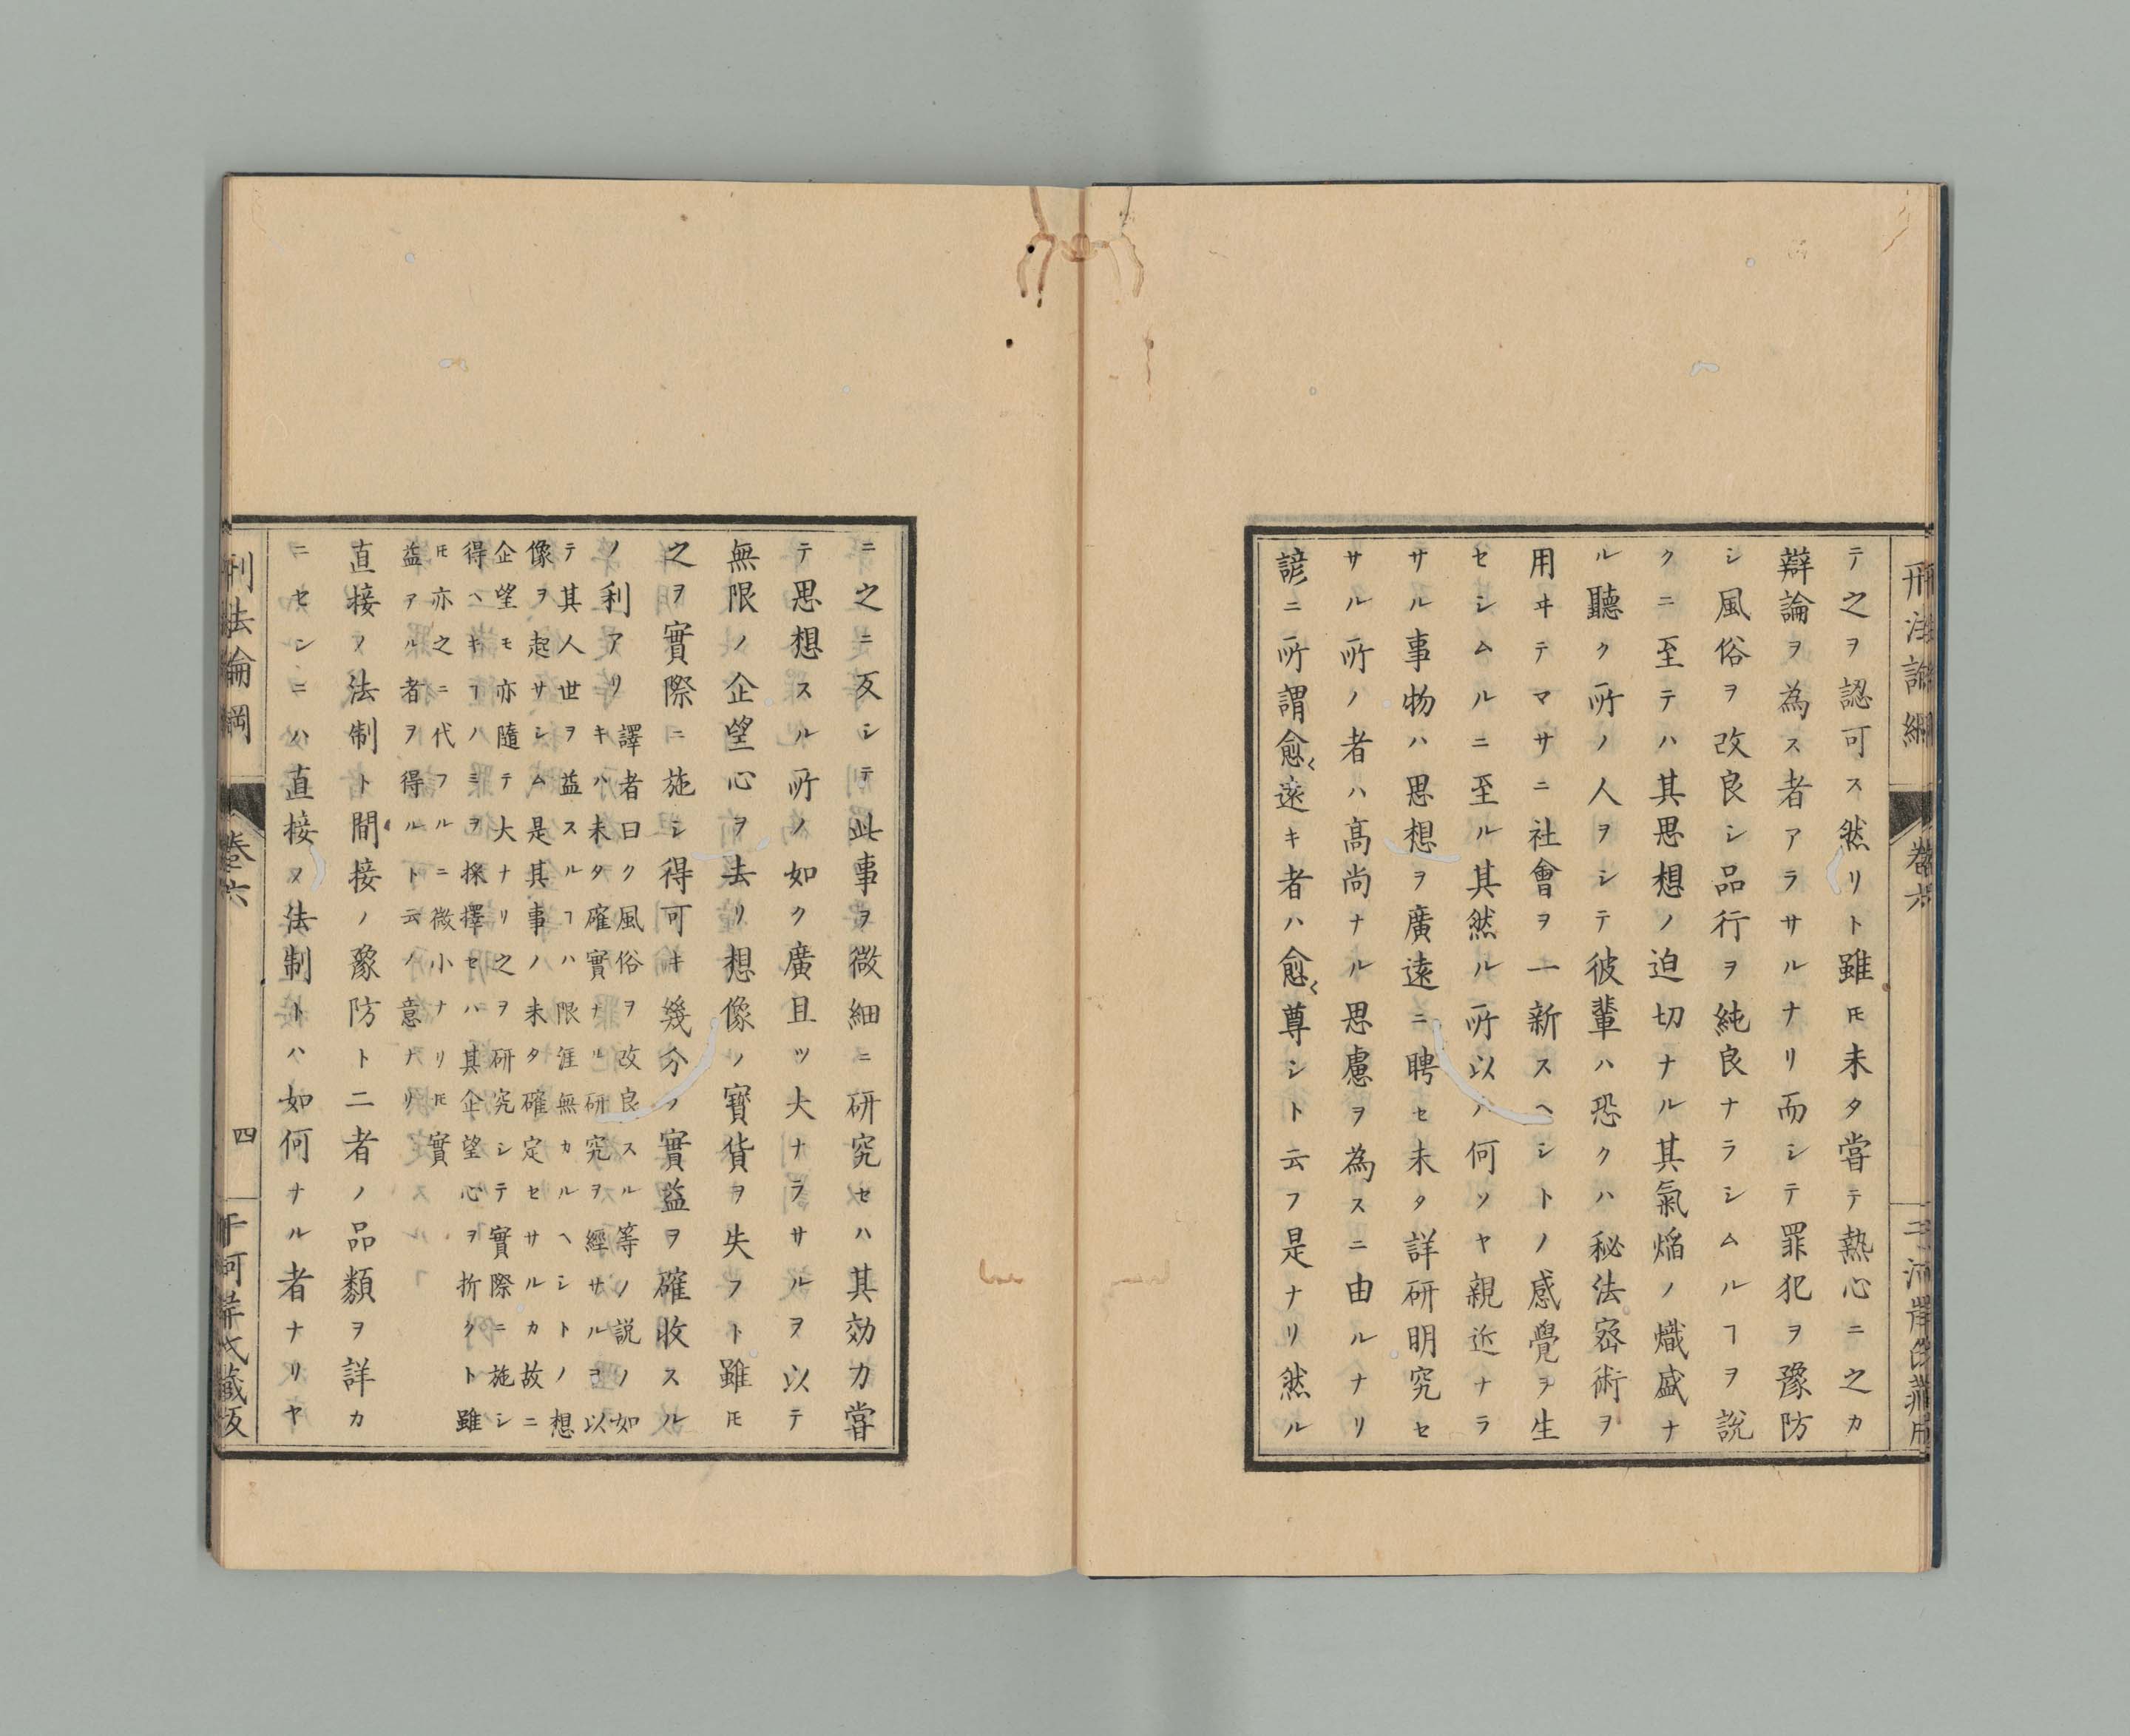 刑法論綱
卷六
テ之ヲ認可ス然リト雖𪜈未タ嘗テ熱心ニ之カ
辯論ヲ爲ス者アラサルナリ而シテ罪犯ヲ豫防
シ風俗ヲ改良シ品行ヲ純良ナラシムルヿヲ說
クニ至テハ其思想ノ迫切ナル其氣焔ノ熾盛ナ
ル聽ク所ノ人ヲシテ彼輩ハ恐クハ秘法密術ヲ
用ヰテマサニ社會ヲ一新スヘシトノ感覺ヲ生
セシムルニ至ル其然ル所以ハ何ソヤ親近ナラ
サル事物ハ思想ヲ廣遠ニ聘セ未タ詳研明究セ
サル所ノ者ハ高尚ナル思慮ヲ爲スニ由ルナリ
諺ニ所謂愈〱遠キ者ハ愈〱尊シト云フ是ナリ然ル
ニ之ニ反シテ此事ヲ微細ニ研究セハ其効力嘗
テ思想スル所ノ如ク廣且ツ大ナラサルヲ以テ
無限ノ企望心ヲ去リ想像ノ寳貨ヲ失フト雖𪜈
之ヲ實際ニ施シ得可キ幾分ノ實益ヲ確收スル
ノ利アリ
譯者曰ク風俗ヲ改良スル等ノ說ノ如
キハ未タ確實ナル研究ヲ經サルヲ以
テ其人世ヲ益スルヿハ限涯無カルヘシトノ想
像ヲ起サシム是其事ノ未タ確定セサルカ故ニ
企望モ亦隨テ大ナリ之ヲ研究シテ實際ニ施シ
得ヘキヿハミヲ採擇セハ其企望心ヲ折クト雖
𪜈亦之ニ代フルニ微小ナリ𪜈實
益アル者ヲ得ルト云ノ意ナリ
直接ノ法制ト間接ノ豫防ト二者ノ品類ヲ詳カ
ニセンニハ直接ノ法制トハ如何ナル者ナリヤ
刑法論綱
卷六
四